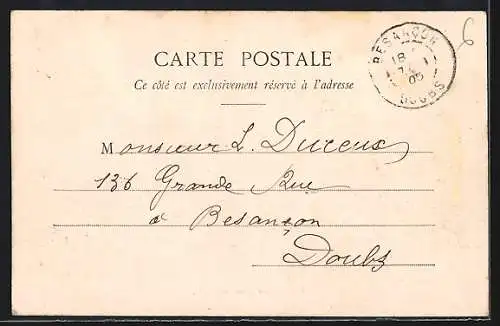 6
BESANÇON
18
1
05
DOUBS
CARTE POSTALE
Ce côté est exclusivement réservé à l'adresse
Monsieur L. Dureux
136 Grande Rue
à Besançon
Doubs